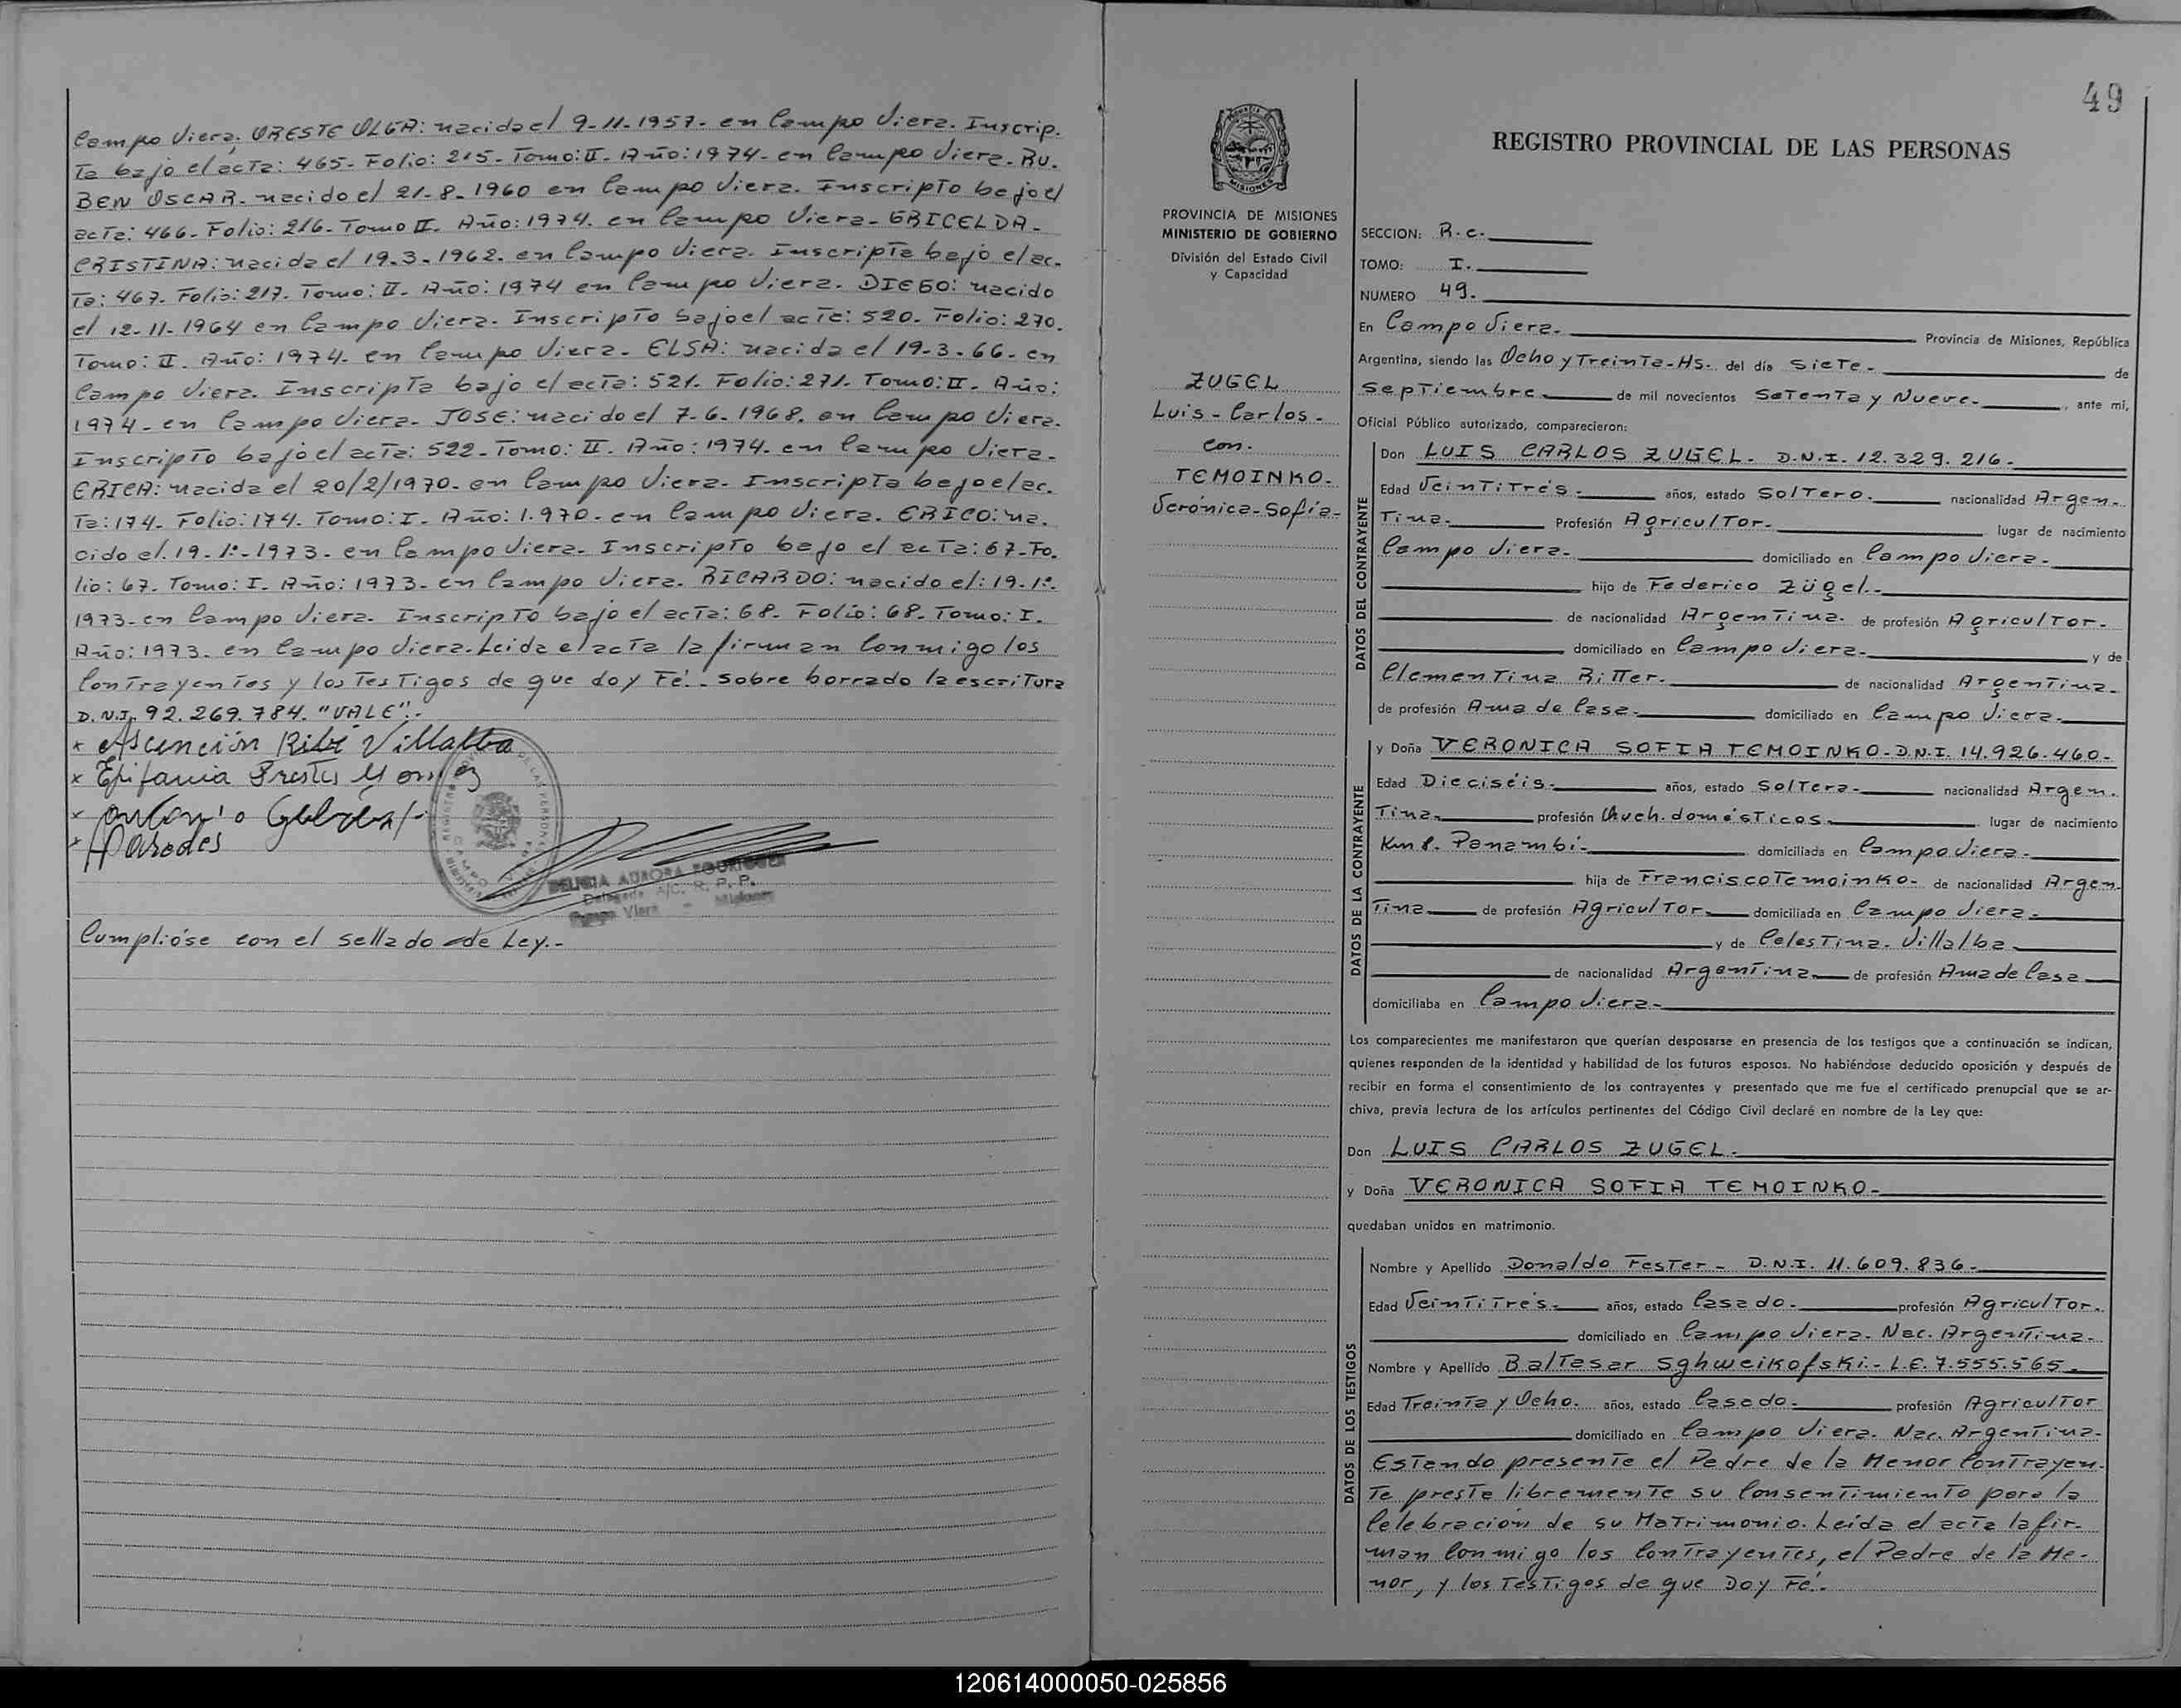 Campo Viera. ORESTE OLGA: nacida el 9-11-1957- en Campo Viera. Inscrip.
ta bajo el acta: 465- Folio: 215- Tomo: II- Año: 1974- en Campo Viera- RU.
BEN OSCAR- nacido el 21-8-1960 en Campo Viera. Inscripto bajo el
acta: 466- Folio: 216- Tomo II. Año: 1974. en Campo Viera- GRICELDA-
CRISTINA: nacida el 19-3-1962- en Campo Viera. Inscripta bajo el ac-
ta: 467. Folio: 217. Tomo: II- Año: 1974 en Campo Viera. DIEGO: nacido
el 12-11-1964 en Campo Viera- Inscripto bajo el acta: 520- Folio: 270.
Tomo: II. Año: 1974- en Campo Viera- ELSA: nacida el 19-3-66- en
Campo Viera. Inscripta bajo el acta: 521. Folio: 271. Tomo: II- Año:
1974- en Campo Viera- JOSE: nacido el 7-6-1968. en Campo Viera.
Inscripto bajo el acta: 522- Tomo: II. Año: 1974. en Campo Viera-
ERICA: nacida el 20/2/1970- en Campo Viera- Inscripta bajo el ac.
ta: 174- Folio: 174. Tomo: I- Año: 1.970- en Campo Viera. ERICO: na.
cido el. 19-1º-1973- en Campo Viera- Inscripto bajo el acta: 67- Fo.
lio: 67. Tomo: I. Año: 1973- en Campo Viera. RICARDO: nacido el: 19-1º-
1973- en Campo Viera. Inscripto bajo el acta: 68. Folio: 68- Tomo: I.
Año: 1973- en Campo Viera. Leida el acta la firman Conmigo los
Contrayentes y los Testigos de que doy Fé.- Sobre borrado la escritura
D.N.I. 92.269.784. "VALE".-
x Ascención Ribé Villalba
x Epifania Prestes
x
x Paredes
DELICIA AURORA RODRIGUEZ
Delegada A/C. R. P. P.
Campo Viera - Misiones
Cumplióse con el sellado de Ley.-
49
MISIONES
PROVINCIA DE MISIONES
MINISTERIO DE GOBIERNO
División del Estado Civil
y Capacidad
ZUGEL
Luis-Carlos-
con.
TEMOINKO.
Verónica-Sofía-
REGISTRO PROVINCIAL DE LAS PERSONAS
SECCION: R.c.
TOMO: I.
NUMERO 49.
En Campo Viera. Provincia de Misiones, República
Argentina, siendo las Ocho y Treinta-Hs. del día Siete- de
Septiembre- de mil novecientos Setenta y Nueve-, ante mí,
Oficial Público autorizado, comparecieron:
DATOS DEL CONTRAYENTE
Don LUIS CARLOS ZUGEL- D.N.I. 12.329.216-
Edad Veintitrés- años, estado Soltero. nacionalidad Argen-
tina- Profesión Agricultor- lugar de nacimiento
Campo Viera- domiciliado en Campo Viera-
hijo de Federico Zügel.-
de nacionalidad Argentina- de profesión Agricultor-
domiciliado en Campo Viera- y de
Clementina Ritter. de nacionalidad Argentina-
de profesión Ama de Casa- domiciliado en Campo Viera-
DATOS DE LA CONTRAYENTE
y Doña VERONICA SOFIA TEMOINKO- D.N.I. 14.926.460-
Edad Dieciséis- años, estado Soltera- nacionalidad Argen.
tina- profesión Queh. domésticos- lugar de nacimiento
Km 8. Panambi- domiciliada en Campo Viera-
hija de Francisco Temoinko- de nacionalidad Argen-
tina de profesión Agricultor- domiciliada en Campo Viera-
y de Celestina Villalba
de nacionalidad Argentina- de profesión Ama de Casa
domiciliaba en Campo Viera-
Los comparecientes me manifestaron que querían desposarse en presencia de los testigos que a continuación se indican,
quienes responden de la identidad y habilidad de los futuros esposos. No habiéndose deducido oposición y después de
recibir en forma el consentimiento de los contrayentes y presentado que me fue el certificado prenupcial que se ar-
chiva, previa lectura de los artículos pertinentes del Código Civil declaré en nombre de la Ley que:
Don LUIS CARLOS ZUGEL.
y Doña VERONICA SOFIA TEMOINKO-
quedaban unidos en matrimonio.
DATOS DE LOS TESTIGOS
Nombre y Apellido Donaldo Fester- D.N.I. 11.609.836-
Edad Veintitrés- años, estado Casado- profesión Agricultor-
domiciliado en Campo Viera. Nac. Argentina-
Nombre y Apellido Baltasar Sghweikofski- L.E. 7.555.565-
Edad Treinta y Ocho. años, estado Casado- profesión Agricultor
domiciliado en Campo Viera. Nac. Argentina-
Estando presente el Padre de la Menor Contrayen-
te presta libremente su Consentimiento para la
Celebración de su Matrimonio. Leída el acta la fir-
man Conmigo los Contrayentes, el Padre de la Me-
nor, y los Testigos de que Doy Fé.-
120614000050-025856